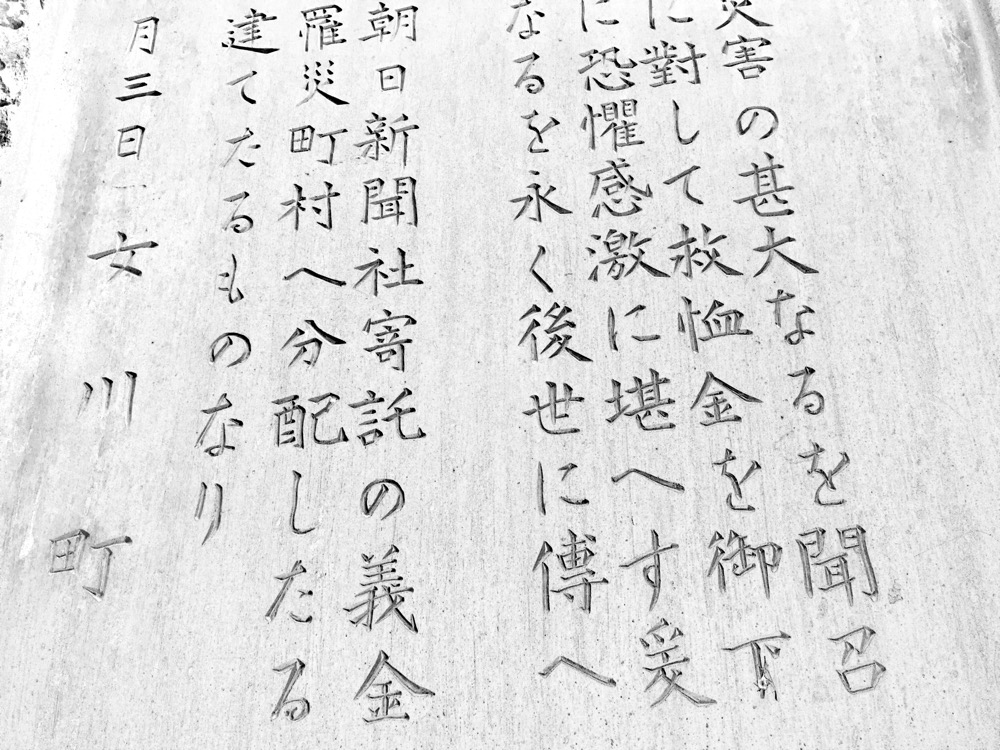 災害の甚大なるを聞召
に對して救恤金を御下
に恐懼感激に堪へす爰
なるを永く後世に傳へ
朝日新聞社寄託の義金
罹災町村へ分配したる
建てたるものなり
月三日
女川町